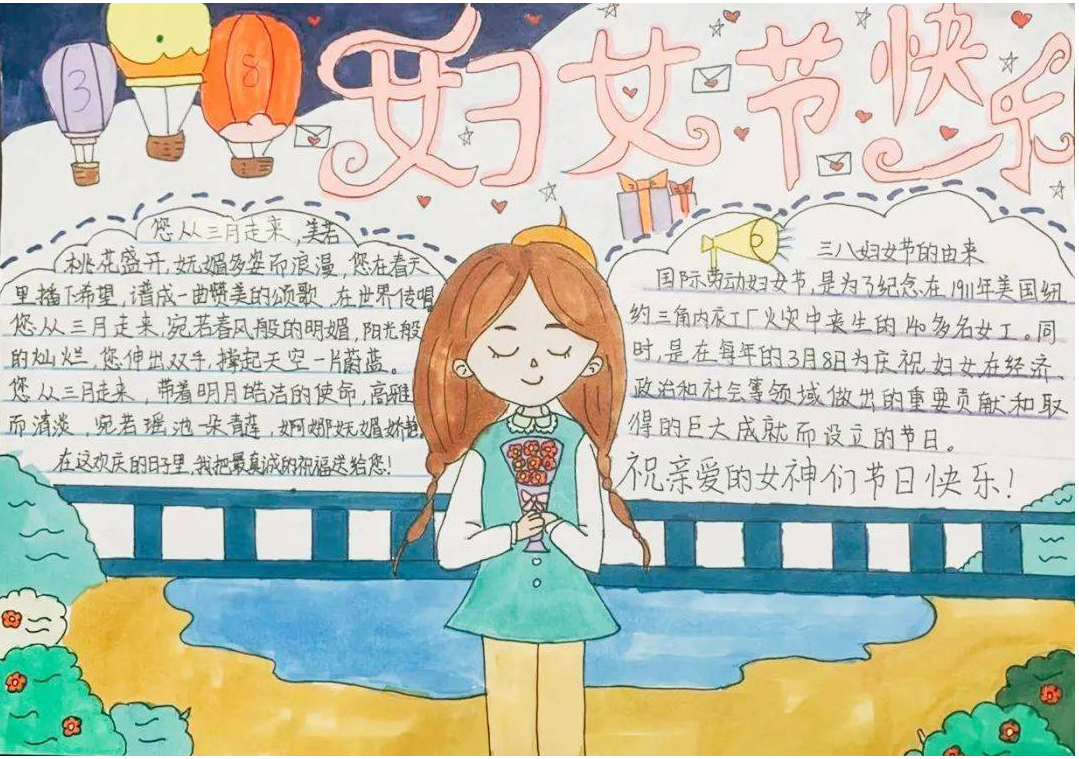 3
8
妇女节快乐
您从三月走来,美若
桃花盛开,妩媚多姿而浪漫,您在春天
里播下希望,谱成一曲赞美的颂歌,在世界传唱
您从三月走来,宛若春风般的明媚,阳光般
的灿烂,您伸出双手,撑起天空一片蔚蓝。
您从三月走来,带着明月皓洁的使命,高雅
而清淡,宛若瑶池一朵青莲,婀娜妩媚娇艳
在这欢庆的日子里,我把最真诚的祝福送给您!
三八妇女节的由来
国际劳动妇女节,是为了纪念在1911年美国纽
约三角内衣工厂火灾中丧生的140多名女工。同
时,是在每年的3月8日为庆祝妇女在经济、
政治和社会等领域做出的重要贡献和取
得的巨大成就而设立的节日。
祝亲爱的女神们节日快乐!